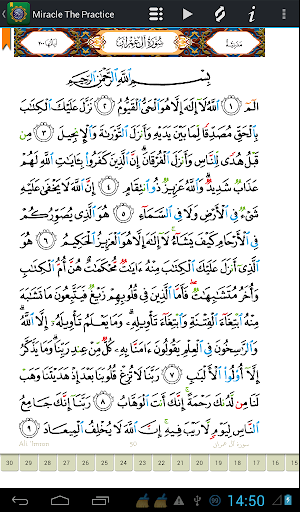 Miracle The Practice
مدنية سورة آل عمران آياتها ٢٠٠
بِسْمِ ٱللَّهِ ٱلرَّحْمَٰنِ ٱلرَّحِيمِ
الٓمٓ ١ ٱللَّهُ لَآ إِلَٰهَ إِلَّا هُوَ ٱلْحَىُّ ٱلْقَيُّومُ ٢ نَزَّلَ عَلَيْكَ ٱلْكِتَٰبَ
بِٱلْحَقِّ مُصَدِّقًا لِّمَا بَيْنَ يَدَيْهِ وَأَنزَلَ ٱلتَّوْرَىٰةَ وَٱلْإِنجِيلَ ٣ مِن
قَبْلُ هُدًى لِّلنَّاسِ وَأَنزَلَ ٱلْفُرْقَانَ إِنَّ ٱلَّذِينَ كَفَرُوا۟ بِـَٔايَٰتِ ٱللَّهِ لَهُمْ
عَذَابٌ شَدِيدٌ وَٱللَّهُ عَزِيزٌ ذُو ٱنتِقَامٍ ٤ إِنَّ ٱللَّهَ لَا يَخْفَىٰ عَلَيْهِ
شَىْءٌ فِى ٱلْأَرْضِ وَلَا فِى ٱلسَّمَآءِ ٥ هُوَ ٱلَّذِى يُصَوِّرُكُمْ
فِى ٱلْأَرْحَامِ كَيْفَ يَشَآءُ لَآ إِلَٰهَ إِلَّا هُوَ ٱلْعَزِيزُ ٱلْحَكِيمُ ٦
هُوَ ٱلَّذِىٓ أَنزَلَ عَلَيْكَ ٱلْكِتَٰبَ مِنْهُ ءَايَٰتٌ مُّحْكَمَٰتٌ هُنَّ أُمُّ ٱلْكِتَٰبِ
وَأُخَرُ مُتَشَٰبِهَٰتٌ فَأَمَّا ٱلَّذِينَ فِى قُلُوبِهِمْ زَيْغٌ فَيَتَّبِعُونَ مَا تَشَٰبَهَ
مِنْهُ ٱبْتِغَآءَ ٱلْفِتْنَةِ وَٱبْتِغَآءَ تَأْوِيلِهِۦ وَمَا يَعْلَمُ تَأْوِيلَهُۥٓ إِلَّا ٱللَّهُ
وَٱلرَّٰسِخُونَ فِى ٱلْعِلْمِ يَقُولُونَ ءَامَنَّا بِهِۦ كُلٌّ مِّنْ عِندِ رَبِّنَا وَمَا يَذَّكَّرُ
إِلَّآ أُو۟لُوا۟ ٱلْأَلْبَٰبِ ٧ رَبَّنَا لَا تُزِغْ قُلُوبَنَا بَعْدَ إِذْ هَدَيْتَنَا وَهَبْ
لَنَا مِن لَّدُنكَ رَحْمَةً إِنَّكَ أَنتَ ٱلْوَهَّابُ ٨ رَبَّنَآ إِنَّكَ جَامِعُ
ٱلنَّاسِ لِيَوْمٍ لَّا رَيْبَ فِيهِ إِنَّ ٱللَّهَ لَا يُخْلِفُ ٱلْمِيعَادَ ٩
Ali 'Imran 50 سورة آل عمران
30 29 28 27 26 25 24 23 22 21 20 19 18 17 16 15
14:50